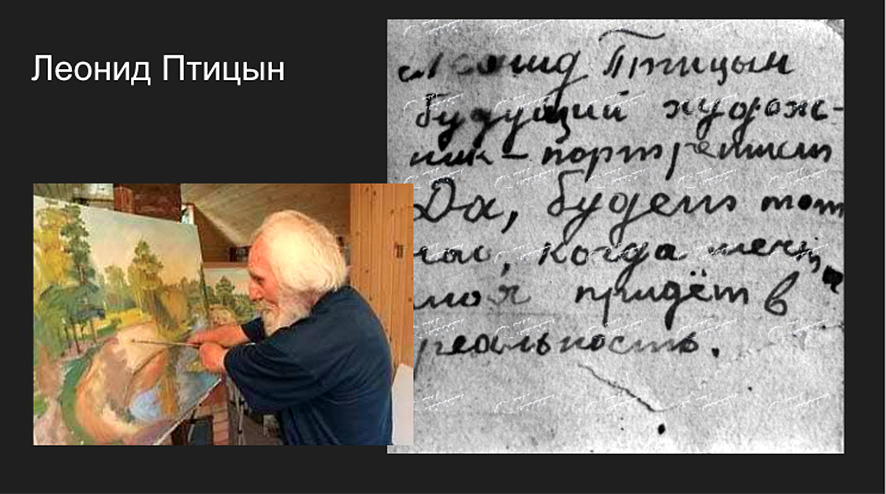 Леонид Птицын
Леонид Птицын
будущий худож-
ник - портретист
Да, будет тот
час, когда мечта
моя придёт в
реальность.